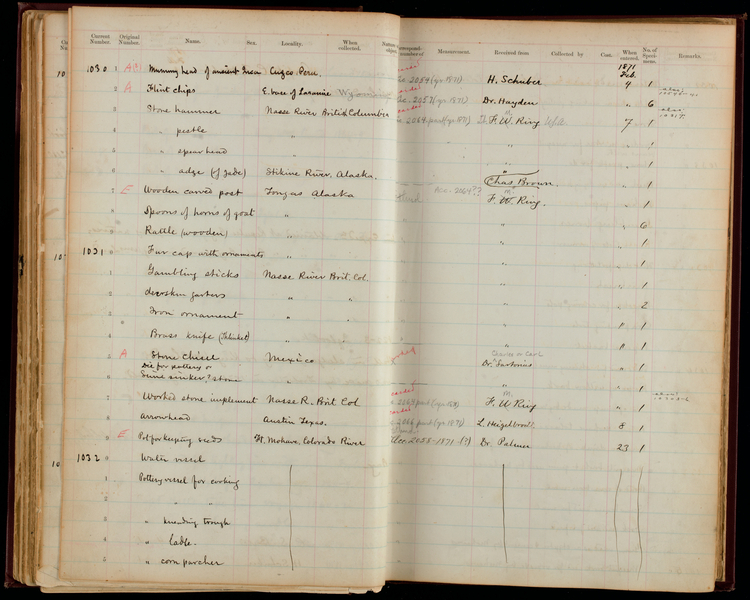 Current Number. Original Number. Name. Sex. Locality. When collected. Nature of object. Correspond- number of Measurement. Received from Collected by Cost. When entered. No. of Speci- mens. Remarks.
1871 Feb.
1030 1 Mummy head of ancient Inca Cuzco Peru. 2054 (yr. 1871) H. Schuber 4 1
2 A Flint chips E. base of Laramie Wyoming 2053 (yr. 1871) Dr. Hayden " 6
3 Stone hammer Nasse River British Columbia 2064 part (yr. 1871) F. W. Ring 7 1
4 " pestle " " " 1
5 " spearhead " 1
6 " adze (of jade) Stikine River, Alaska. Chas. Brown. " 1
7 E Wooden carved post Tongas Alaska Acc. 2064?? F. W. Ring. " 1
8 Spoons of horns of goat " " " 6
9 Rattle (wooden) " " " 1
1031 0 Fur cap with ornaments " " " 1
1 Gambling sticks Nasse River Brit. Col. " " 1
2 deerskin garters " " " " 2
3 Iron ornament " " " 1
4 Brass knife (Thlinket) " " 1
5 A Stone chisel Mexico Charles or Carl Dr. Sartorius " 1
Die for pottery or
6 stone " " " 1
7 Worked stone implement Nasse R. Brit Col 2063 part (yr. 1871) F. W. Ring " 1
8 arrowhead Austin Texas. 2066 part (yr. 1871) 8 1
9 E Pot for keeping seeds Ft. Mohave, Colorado River Acc. 2058-1871 (?) Dr. Palmer 23 1
1032 0 Water vessel
1 Pottery vessel for cooking
2 " "
3 " kneading trough
4 " ladle.
5 " corn parcher